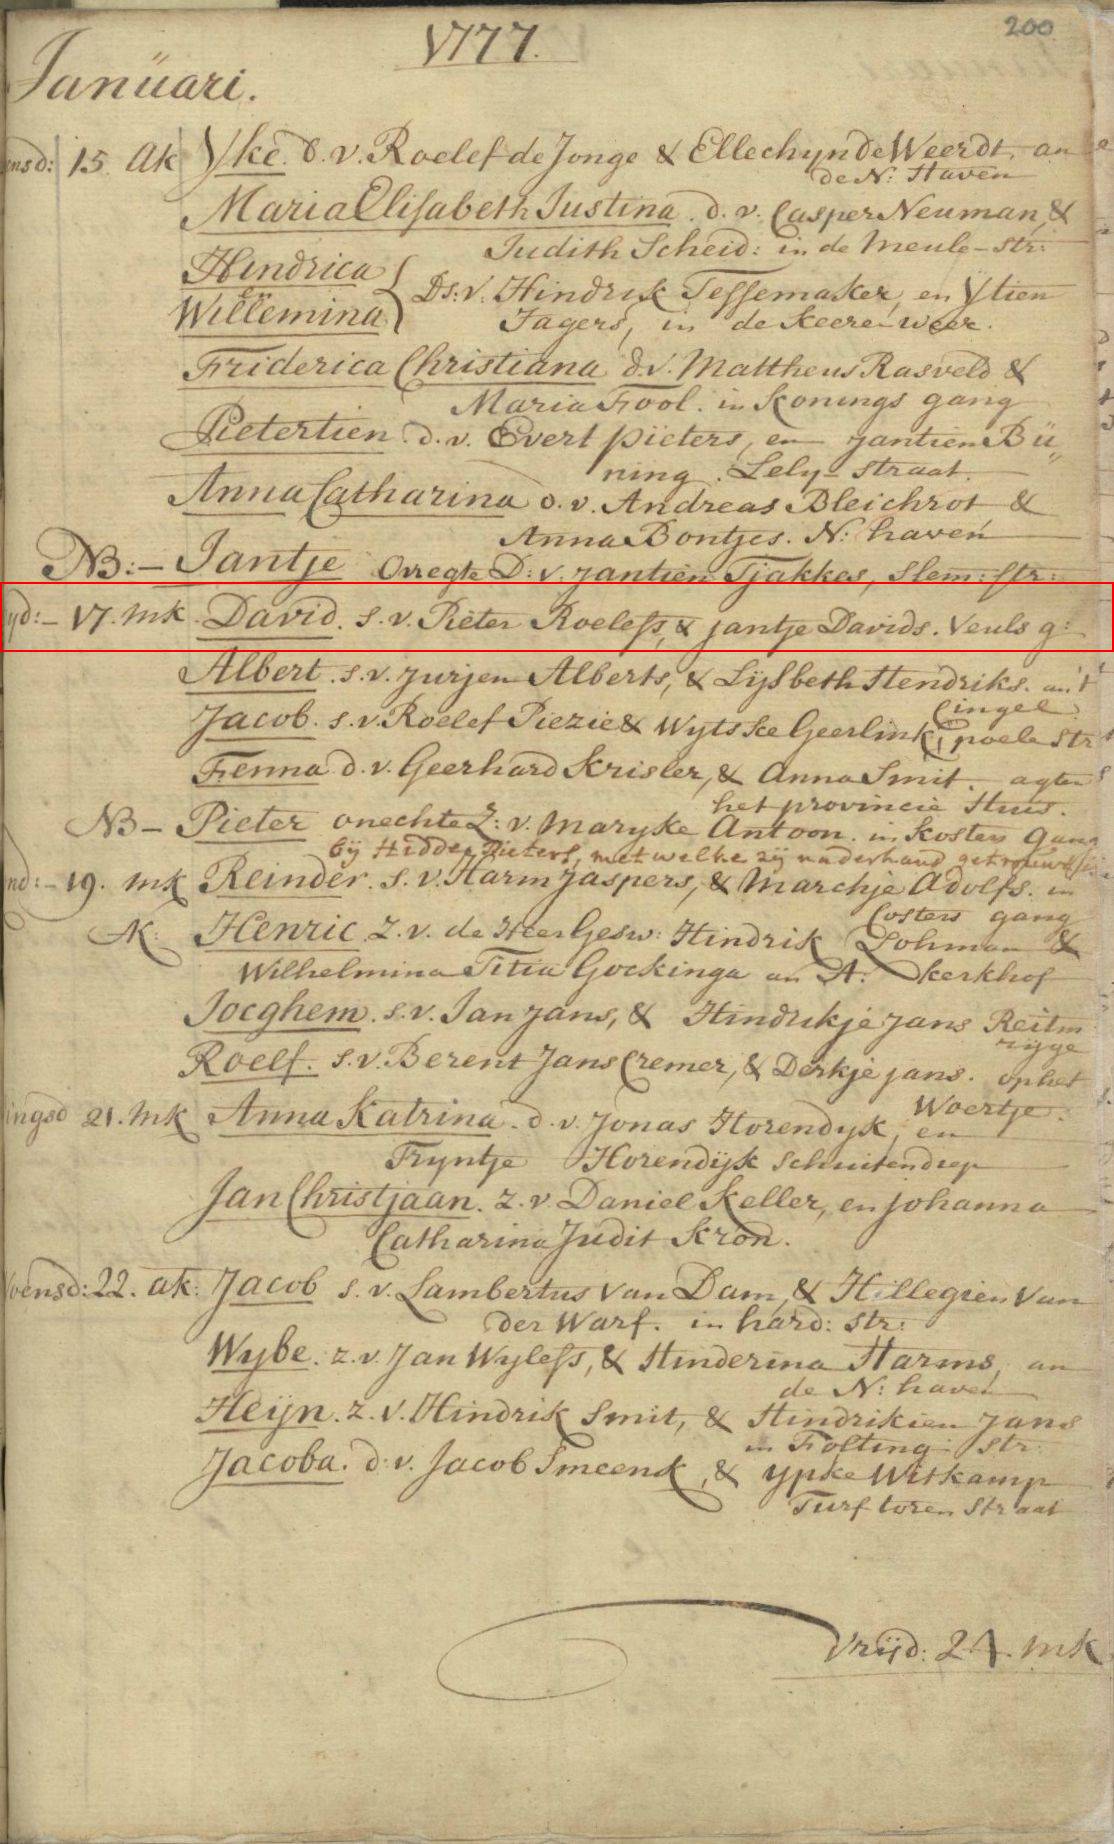 200
1777.
Januari.
ensd: 15. Ak Yke. d. v. Roelef de Jonge & Ellechyn de Weerdt, an
de N: Haven
Maria Elisabeth Justina. d. v. Casper Neuman, &
Judith Scheid: in de Meule-str:
Hindrica
en
Willemina
Ds: v. Hindrik Tessemaker, en Ytien
Jagers, in de Keere weer.
Friderica Christiana d. v. Mattheus Rasveld &
Maria Fool. in Konings gang
Pietertien d. v. Evert pieters, en jantien Bü„
ning. Lely-straat.
Anna Catharina d. v. Andreas Bleichrot &
Anna Bontjes. N: haven
NB:- Jantje Onegte D: v. jantien Tjakkes, slem: str:
yd:- 17. mk. David. s. v. Pieter Roelefs, & jantje Davids. Veuls g:
Albert. s. v. jurjen Alberts, & Lijsbeth Hendriks. an 't
Cingel.
Jacob. s. v. Roelef Piezie & Wytske Geerlink, poele str
Fenna d. v. Geerhard Krisler, & Anna Smit. agter
het provincie Huis.
NB- Pieter onechte Z: v. Maryke Antoon. in Kosters Gang
bij Hidde Pieters, met welke zij naderhand getrouwd
nd:- 19. mk Reinder. s. v. Harm Jaspers, & Marchje Adolfs. in
Costers gang
AK: Henric. z. v. de Heer Gesw: Hindrik Lohman &
Wilhelmina Titia Gockinga an A: kerkhof
Jocghem. s. v. Jan jans, & Hindrikje jans Reitm
rijge
Roelf. s. v. Berent Jans Cremer, & Derkje jans. op het
Woertje.
ingsd 21. mk Anna Katrina. d. v. Jonas Horendyk, en
Tryntje Horendijk Schuitendiep
Jan Christjaan. z. v. Daniel Keller, en johanna
Catharina Judit Kron.
Woensd: 22. ak: Jacob s. v. Lambertus van Dam, & Hillegien van
der Warf. in hard: str:
Wybe. z. v. Jan Wylefs, & Hinderina Harms, an
de N: haven
Heijn. z. v. Hindrik Smit, & Hindrikien Jans
in Folting: str:
Jacoba. d. v. Jacob Smeenk, & ypke Witkamp
Turftoren straat
Vrijd: 24. mk